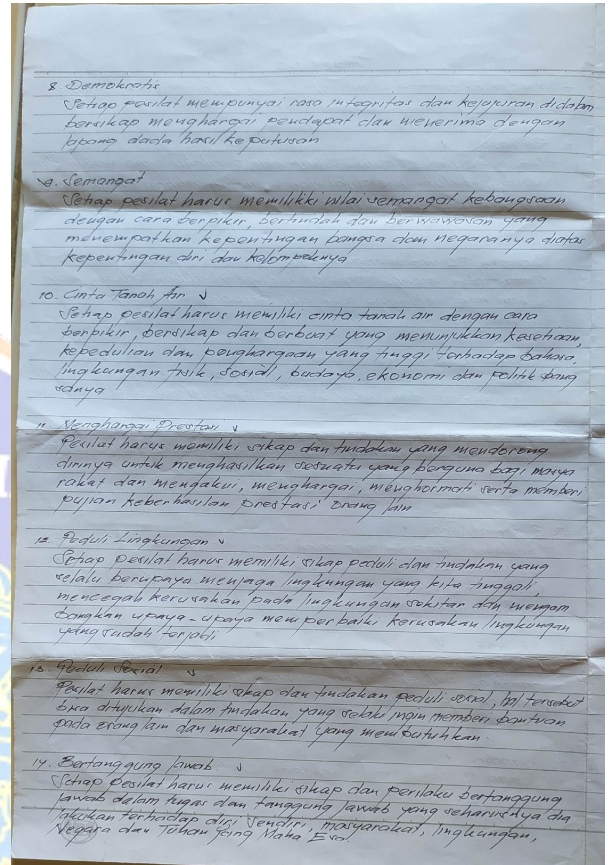 8 Demokratis
Setiap pesilat mempunyai rasa integritas dan kejujuran didalam
bersikap menghargai pendapat dan menerima dengan
lapang dada hasil keputusan
9. Semangat
Setiap pesilat harus memilikki nilai semangat kebangsaan
dengan cara berpikir, bertindak dan berwawasan yang
menempatkan kepentingan bangsa dan negaranya diatas
kepentingan diri dan kelompoknya
10. Cinta Tanah Air √
Setiap pesilat harus memiliki cinta tanah air dengan cara
berpikir, bersikap dan berbuat yang menunjukkan kesetiaan,
kepedulian dan penghargaan yang tinggi terhadap bahasa,
lingkungan fisik, sosial, budaya, ekonomi dan politik bang
sanya
11 Menghargai Prestasi √
Pesilat harus memiliki sikap dan tindakan yang mendorong
dirinya untuk menghasilkan sesuatu yang berguna bagi masya
rakat dan mengakui, menghargai, menghormati serta memberi
pujian keberhasilan prestasi orang lain
12. Peduli Lingkungan √
Setiap pesilat harus memiliki sikap peduli dan tindakan yang
selalu berupaya menjaga lingkungan yang kita tinggali,
mencegah kerusakan pada lingkungan sekitar dan mengem
bangkan upaya-upaya memperbaiki kerusakan lingkungan
yang sudah terjadi
13. Peduli Sosial √
Pesilat harus memiliki sikap dan tindakan peduli sosial, hal tersebut
bisa ditujukan dalam tindakan yang selalu ingin memberi bantuan
pada orang lain dan masyarakat yang membutuhkan.
14. Bertanggung Jawab √
Setiap pesilat harus memiliki sikap dan perilaku bertanggung
jawab dalam tugas dan tanggung jawab yang seharusnya dia
lakukan terhadap diri sendiri, masyarakat, lingkungan,
Negara dan Tuhan Yang Maha Esa.